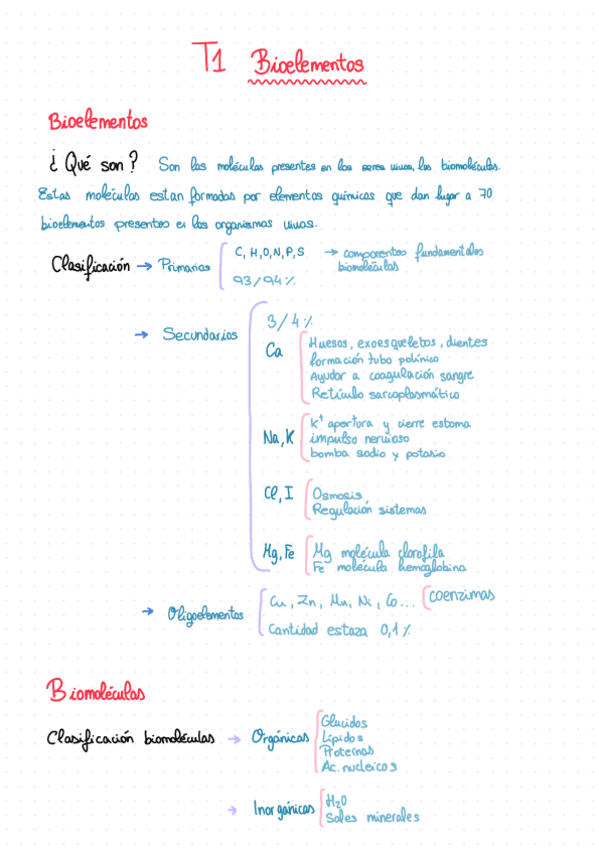 T1 Bioelementos
Bioelementos
¿ Qué son? Son las moléculas presentes en los seres vivos, las biomoléculas.
Estas moléculas estan formadas por elementos químicos que dan lugar a 70
bioelementos presentes en los organismos vivos.
Clasificación → Primarios C, H, O, N, P, S → componentes fundamentales
biomoléculas
93/94%
→ Secundarios 3/4%
Ca Huesos, exoesqueletos, dientes
formación tubo polínico
Ayudar a coagulación sangre
Retículo sarcoplasmático
Na, K K⁺ apertura y cierre estoma
impulso nervioso
bomba sodio y potasio
Cl, I Osmosis
Regulación sistemas
Mg, Fe Mg molécula clorofila
Fe molécula hemoglobina
→ Oligoelementos Cu, Zn, Mn, Ni, Co... coenzimas
Cantidad estaza 0,1%
Biomoléculas
Clasificación biomoléculas → Orgánicas Glucidos
Lípidos
Proteínas
Ac. nucleicos
→ Inorgánicas H₂O
Sales minerales